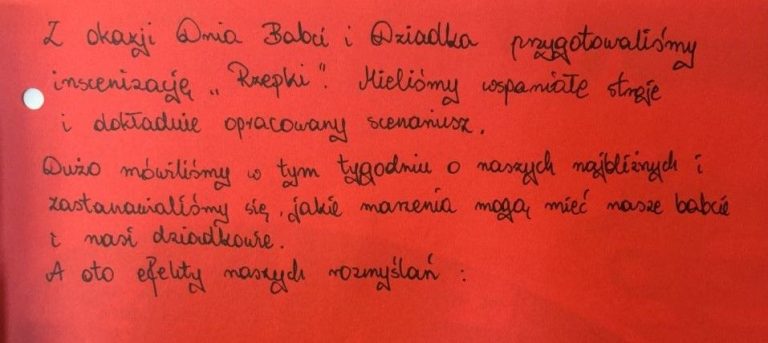 Z okazji Dnia Babci i Dziadka przygotowaliśmy
inscenizację „Rzepki”. Mieliśmy wspaniałe stroje
i dokładnie opracowany scenariusz.
Dużo mówiliśmy w tym tygodniu o naszych najbliższych i
zastanawialiśmy się, jakie marzenia mogą mieć nasze babcie
i nasi dziadkowie.
A oto efekty naszych rozmyślań :